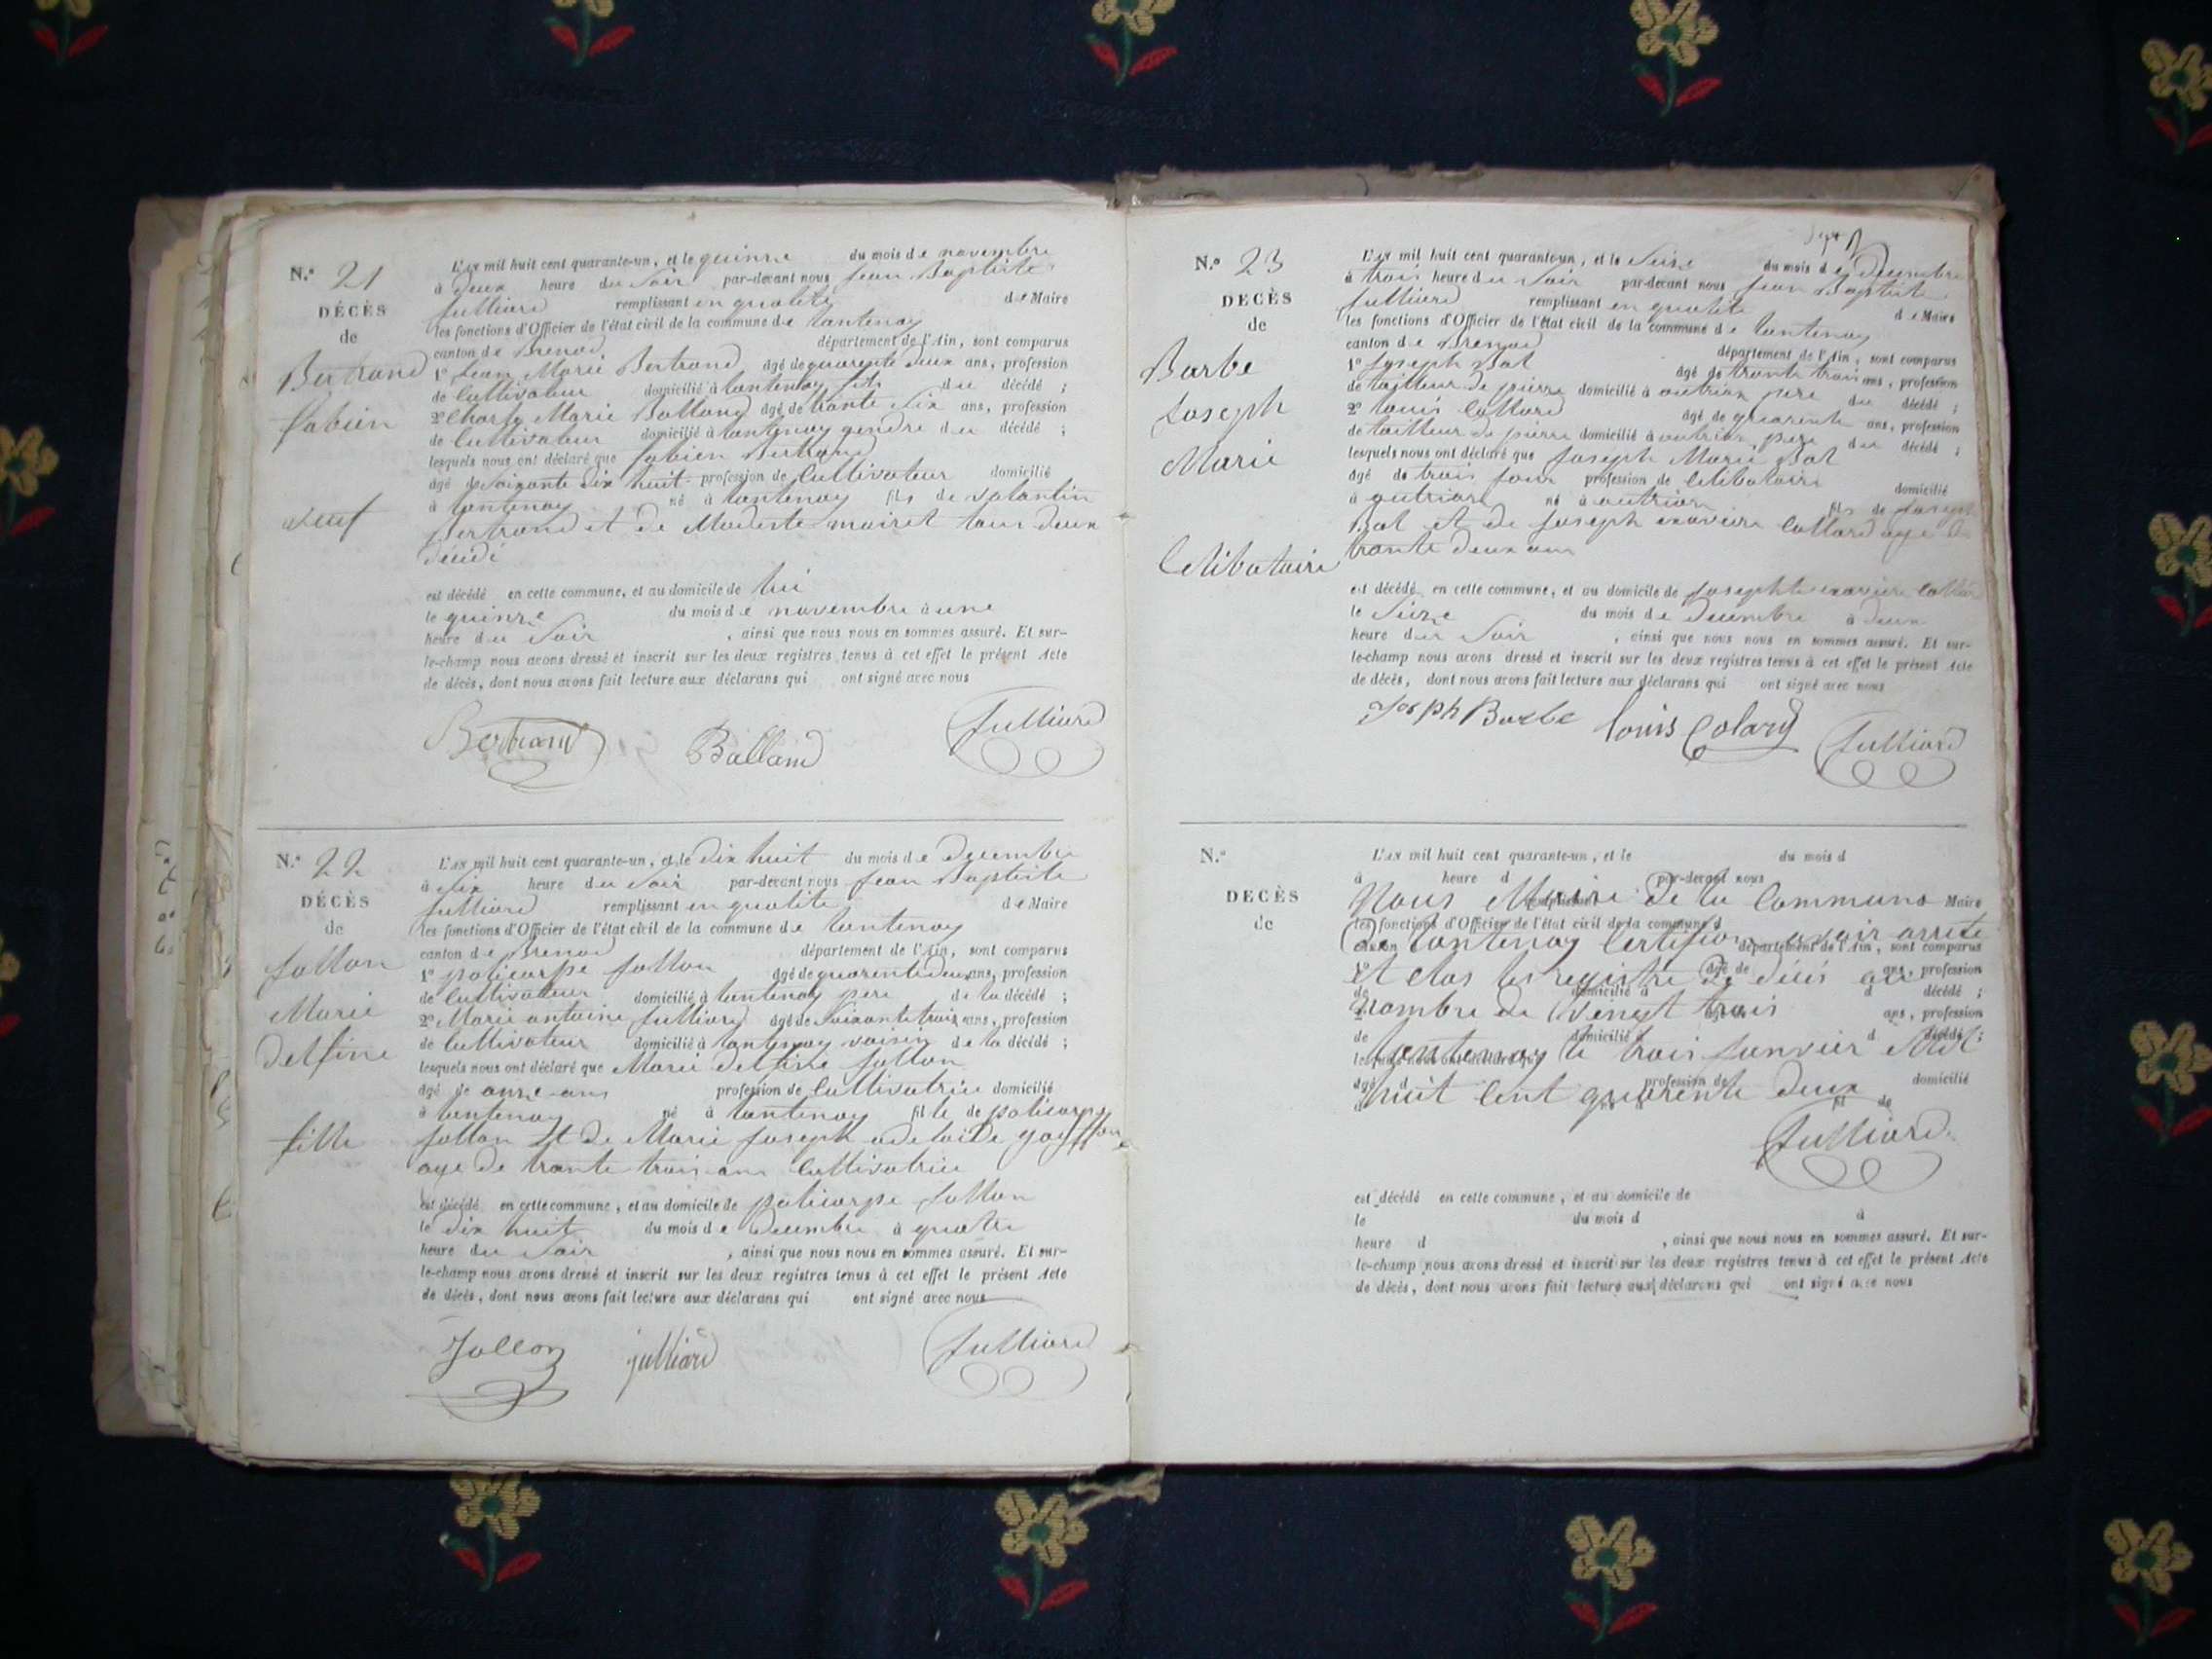 N.° 21
DÉCÈS
de
Bertrand
fabien
veuf
L'AN mil huit cent quarante-un, et le quinze du mois de novembre
à deux heure du soir par-devant nous jean Baptiste
julliard remplissant en qualité de Maire
les fonctions d'Officier de l'état civil de la commune de lantenay
canton de Brenod département de l'Ain, sont comparus
1° jean Marie Bertrand âgé de quarente deux ans, profession
de Cultivateur domicilié à lantenay fils du décédé ;
2° Charle Marie Balland âgé de trante six ans, profession
de Cultivateur domicilié à lantenay gendre du décédé ;
lesquels nous ont déclaré que fabien Bertrand
âgé de soixante dix huit profession de Cultivateur domicilié
à lantenay né à lantenay fils de valantin
Bertrand et de Modeste mairet tous deux
décédé
est décédé en cette commune, et au domicile de lui
le quinze du mois de novembre à une
heure du soir , ainsi que nous nous en sommes assuré. Et sur-
le-champ nous avons dressé et inscrit sur les deux registres tenus à cet effet le présent Acte
de décès, dont nous avons fait lecture aux déclarans qui ont signé avec nous
Bertrand Balland julliard
N.° 22
DÉCÈS
de
jollon
Marie
delfine
fille
L'AN mil huit cent quarante-un, et le dix huit du mois de decembre
à six heure du soir par-devant nous jean Baptiste
julliard remplissant en qualité de Maire
les fonctions d'Officier de l'état civil de la commune de lantenay
canton de Brenod département de l'Ain, sont comparus
1° policarpe jollon âgé de quarente deux ans, profession
de Cultivateur domicilié à lantenay pere de la décédé ;
2° Marie antoine julliard âgé de soixante trois ans, profession
de Cultivateur domicilié à lantenay voisin de la décédé ;
lesquels nous ont déclaré que Marie delfine jollon
âgé de onze ans profession de Cultivatrice domicilié
à lantenay né à lantenay fille de policarpe
jollon et de Marie joseph adelaide
age de trante trois ans Cultivatrice
est décédé en cette commune, et au domicile de policarpe jollon
le dix huit du mois de decembre à quatre
heure du soir , ainsi que nous nous en sommes assuré. Et sur-
le-champ nous avons dressé et inscrit sur les deux registres tenus à cet effet le présent Acte
de décès, dont nous avons fait lecture aux déclarans qui ont signé avec nous
Jollon julliard julliard
N.° 23
DECÈS
de
Barbe
joseph
Marie
Celibataire
L'AN mil huit cent quarante-un, et le seize du mois de decembre
à trois heure du soir par-devant nous jean Baptiste
julliard remplissant en qualité de Maire
les fonctions d'Officier de l'état civil de la commune de lantenay
canton de Brenod département de l'Ain, sont comparus
1° joseph Bal âgé de trante trois ans, profession
de tailleur de pierre domicilié à outriaz pere du décédé ;
2° louis Collard âgé de quarente ans, profession
de tailleur de pierre domicilié à outriaz pere du décédé ;
lesquels nous ont déclaré que joseph Marie Bal
âgé de trois jour profession de Celibataire domicilié
à outriaz né à outriaz fils de joseph
Bal et de joseph Collard age de
trante deux ans
est décédé en cette commune, et au domicile de
le seize du mois de decembre à deux
heure du soir , ainsi que nous nous en sommes assuré. Et sur-
le-champ nous avons dressé et inscrit sur les deux registres tenus à cet effet le présent Acte
de décès, dont nous avons fait lecture aux déclarans qui ont signé avec nous
Joseph Barbe louis Colard julliard
N.°
DECÈS
de
L'AN mil huit cent quarante-un, et le du mois d
à heure d par-devant nous
Nous Maire de la Commune
remplissant Maire
les fonctions d'Officier de l'état civil de la commune d
De lantenay Certifion avoir arreté
canton département de l'Ain, sont comparus
Et clos les registre de décès au
1° âgé de ans, profession
de domicilié à d décédé ;
nombre de Vengt trois
ans, profession
de domicilié à d décédé ;
lantenay le trois janvier Mil
lesquels nous ont déclaré que
âgé d profession de domicilié
huit Cent quarente deux
à né à fil de
julliard
est décédé en cette commune, et au domicile de
le du mois d à
heure d , ainsi que nous nous en sommes assuré. Et sur-
le-champ nous avons dressé et inscrit sur les deux registres tenus à cet effet le présent Acte
de décès, dont nous avons fait lecture aux déclarans qui ont signé avec nous